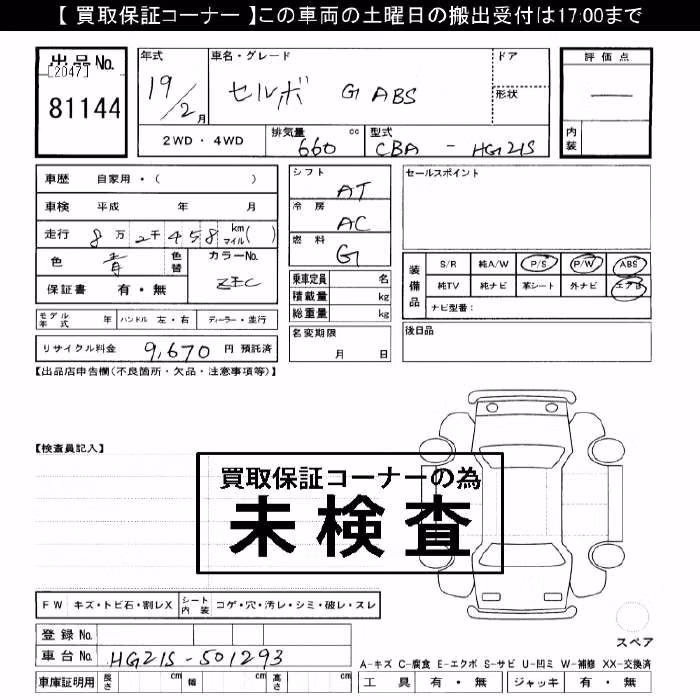 【 買取保証コーナー 】この車両の土曜日の搬出受付は17:00まで
出品No.
[2047]
81144
年式 19/2月
車名・グレード セルボ G ABS
ドア
形状
評価点 —
内装
2WD・4WD
排気量 660 cc
型式 CBA - HG21S
車歴 自家用・( )
車検 平成 年 月
走行 8万2千458 km マイル( )
色 青 色替
カラーNo. ZEC
保証書 有・無
シフト AT
冷房 AC
燃料 G
乗車定員 名
積載量 kg
総重量 kg
名変期限 月 日
セールスポイント
装備品
S/R 純A/W P/S P/W ABS
純TV 純ナビ 革シート 外ナビ エアB
ナビ型番:
後日品
モデル年式 年 ハンドル 左・右 ディーラー・並行
リサイクル料金 9,670 円 預託済
【出品店申告欄(不良箇所・欠品・注意事項等)】
【検査員記入】
買取保証コーナーの為
未検査
FW キズ・トビ石・割レX シート内装 コゲ・穴・汚レ・シミ・破レ・スレ
登録No.
車台No. HG21S-501293
車庫証明用 長さ cm 幅 cm 高さ cm
スペア
A-キズ C-腐食 E-エクボ S-サビ U-凹ミ W-補修 XX-交換済
工具 有・無 ジャッキ 有・無